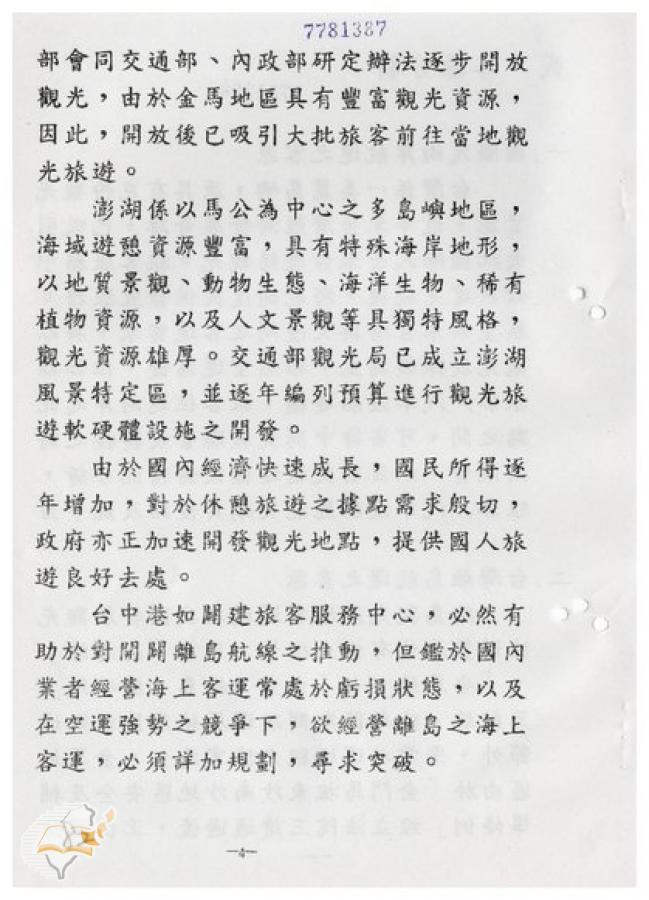 7781387
部會同交通部、內政部研定辦法逐步開放
觀光，由於金馬地區具有豐富觀光資源，
因此，開放後已吸引大批旅客前往當地觀
光旅遊。
澎湖係以馬公為中心之多島嶼地區，
海域遊憩資源豐富，具有特殊海岸地形，
以地質景觀、動物生態、海洋生物、稀有
植物資源，以及人文景觀等具獨特風格，
觀光資源雄厚。交通部觀光局已成立澎湖
風景特定區，並逐年編列預算進行觀光旅
遊軟硬體設施之開發。
由於國內經濟快速成長，國民所得逐
年增加，對於休憩旅遊之據點需求殷切，
政府亦正加速開發觀光地點，提供國人旅
遊良好去處。
台中港如闢建旅客服務中心，必然有
助於對開闢離島航線之推動，但鑑於國內
業者經營海上客運常處於虧損狀態，以及
在空運強勢之競爭下，欲經營離島之海上
客運，必須詳加規劃，尋求突破。